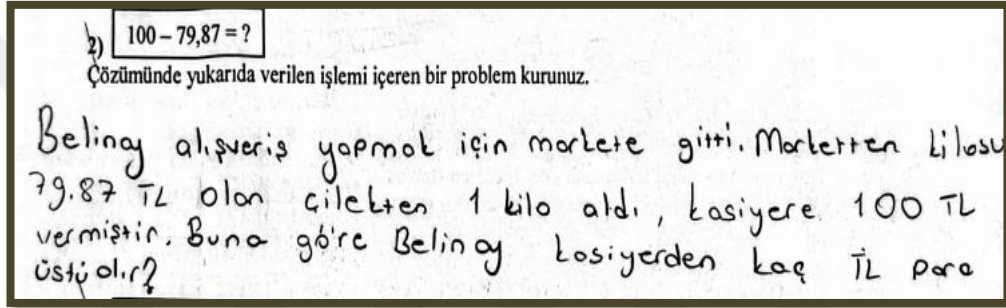 2) 100 – 79,87 = ?
Çözümünde yukarıda verilen işlemi içeren bir problem kurunuz.
Belinay alışveriş yapmak için markete gitti. Marketten kilosu
79.87 TL olan çilekten 1 kilo aldı, kasiyere 100 TL
vermiştir. Buna göre Belinay kasiyerden kaç TL para
üstü alır?